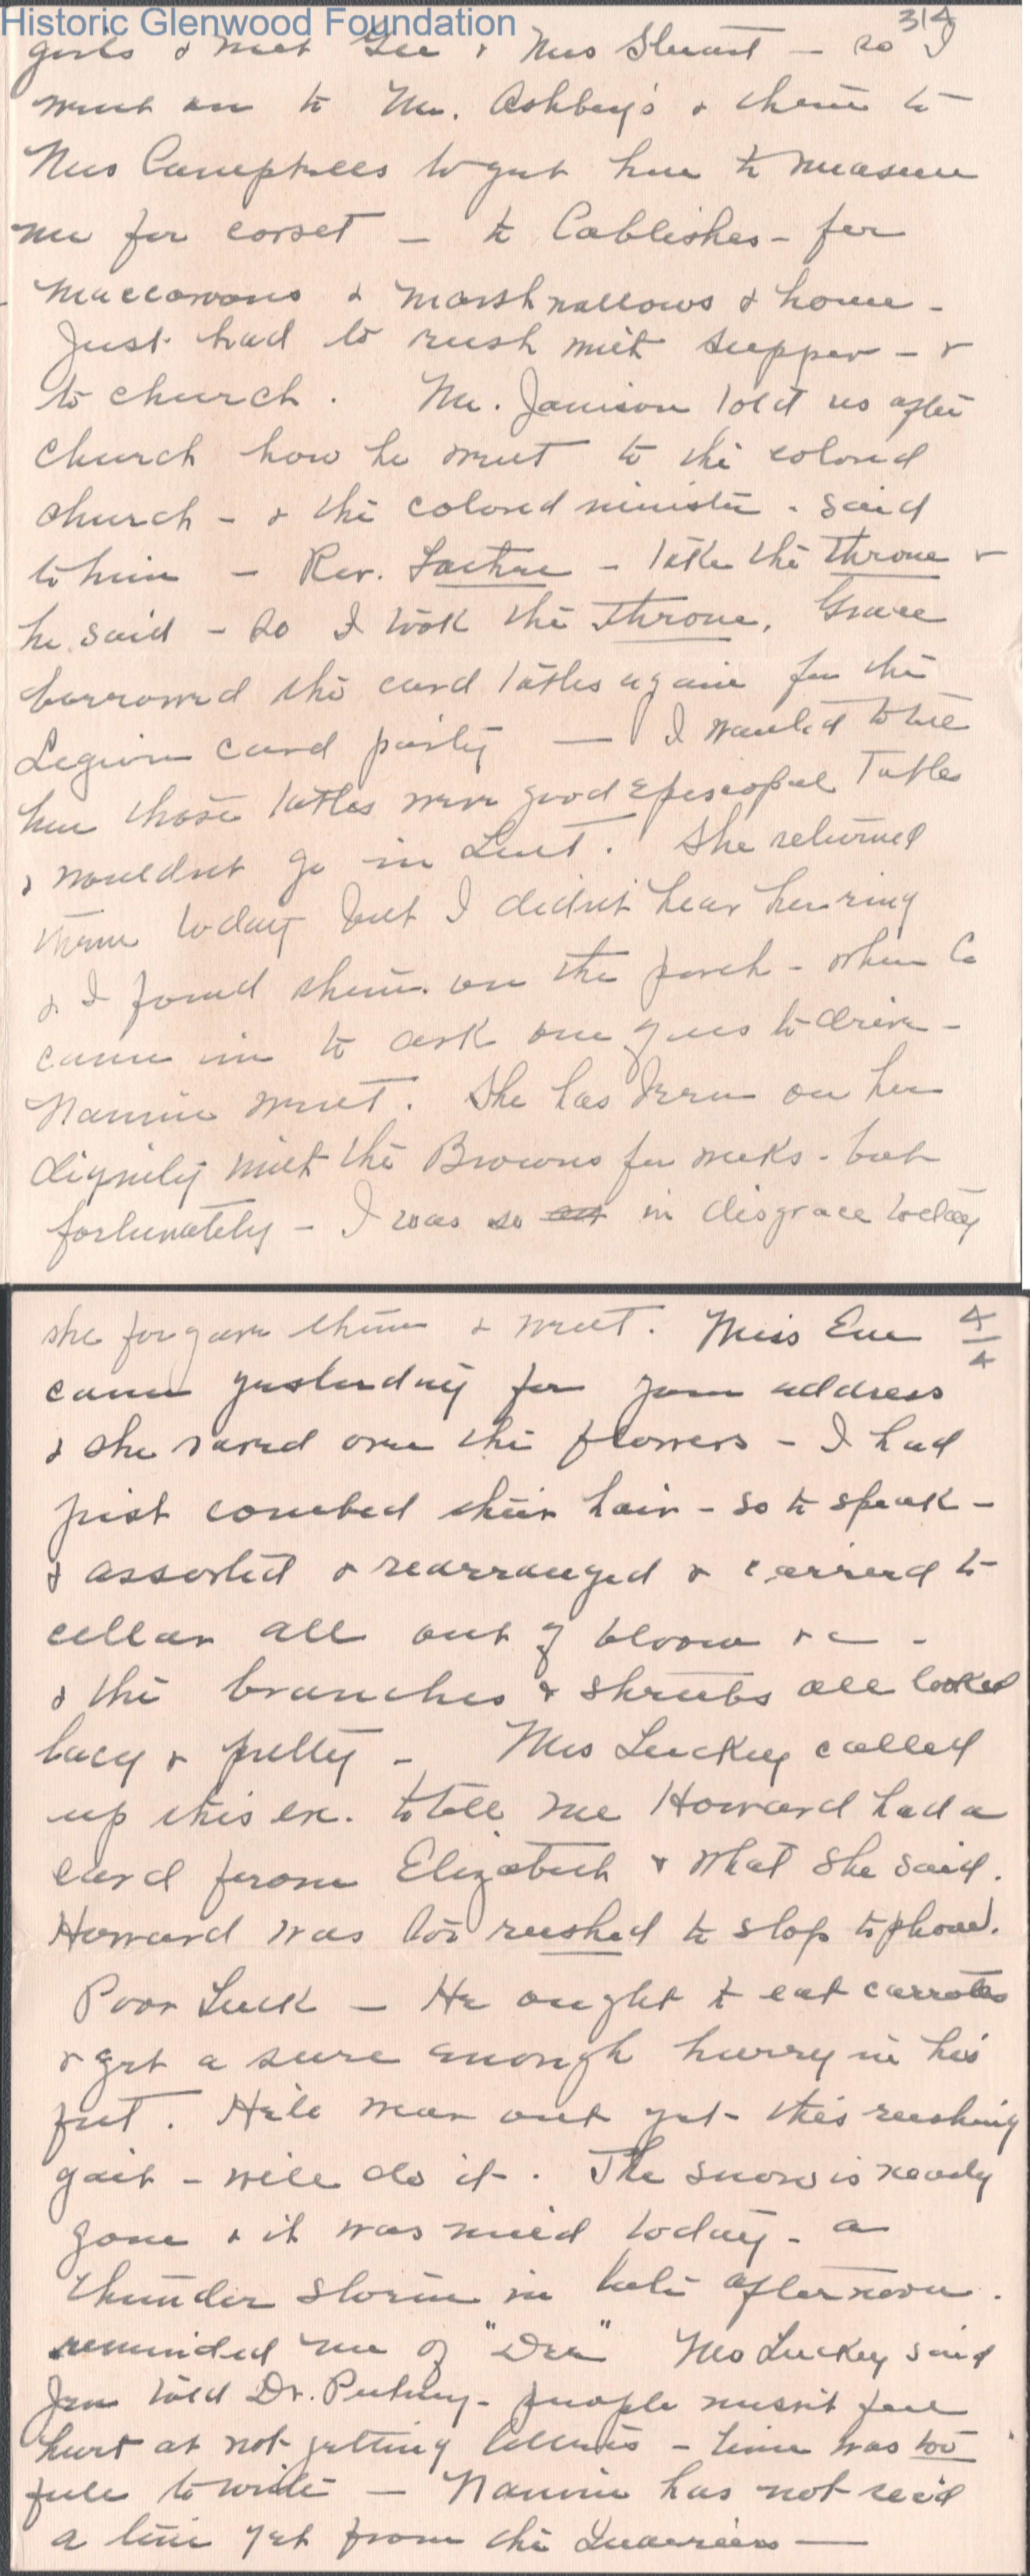 Historic Glenwood Foundation
3/4
girls & met Gee & Mrs Stuart – so I
went on to Mr. Ashbey's & then to
Mrs to get her to measure
me for corset – to Cablishes – for
maccaroons & marshmallows & home –
Just had to rush with supper – &
to church. Mr. Jamison told us after
church how he went to the colored
church – & the colored minister – said
to him – Rev. – take the throne &
he said – So I took the throne. Grace
borrowed the card tables again for the
Legion card party — I wanted to tell
her those tables were good Episcopal Tables
& wouldnt go in Lent. She returned
them today but I didn't hear her ring
& I found them on the porch – when C
came in to ask one of us to drive –
Nannie went. She has been on her
dignity with the Browns for weeks – but
fortunately – I was so in disgrace today
she forgave them & went. Miss Eve
4/4
came yesterday for your address
& she raved over the flowers – I had
just combed their hair – so to speak –
& assorted & rearranged & carried to
cellar all out of bloom &c –
& the branches & shrubs all looked
lacy & pretty – Mrs Luckey called
up this eve. to tell me Howard had a
card from Elizabeth & what she said.
Howard was too rushed to stop to phone.
Poor Luck – He ought to eat carrots
& get a sure enough hurry in his
feet. He'll wear out yet – this rushing
gait – will do it. The snow is nearly
gone & it was mild today – a
thunder storm in late afternoon.
reminded me of "Dee" Mrs Luckey said
Jen told Dr. Putney – people musn't feel
hurt at not getting letters – time was too
full to write — Nannie has not rec'd
a line yet from the —